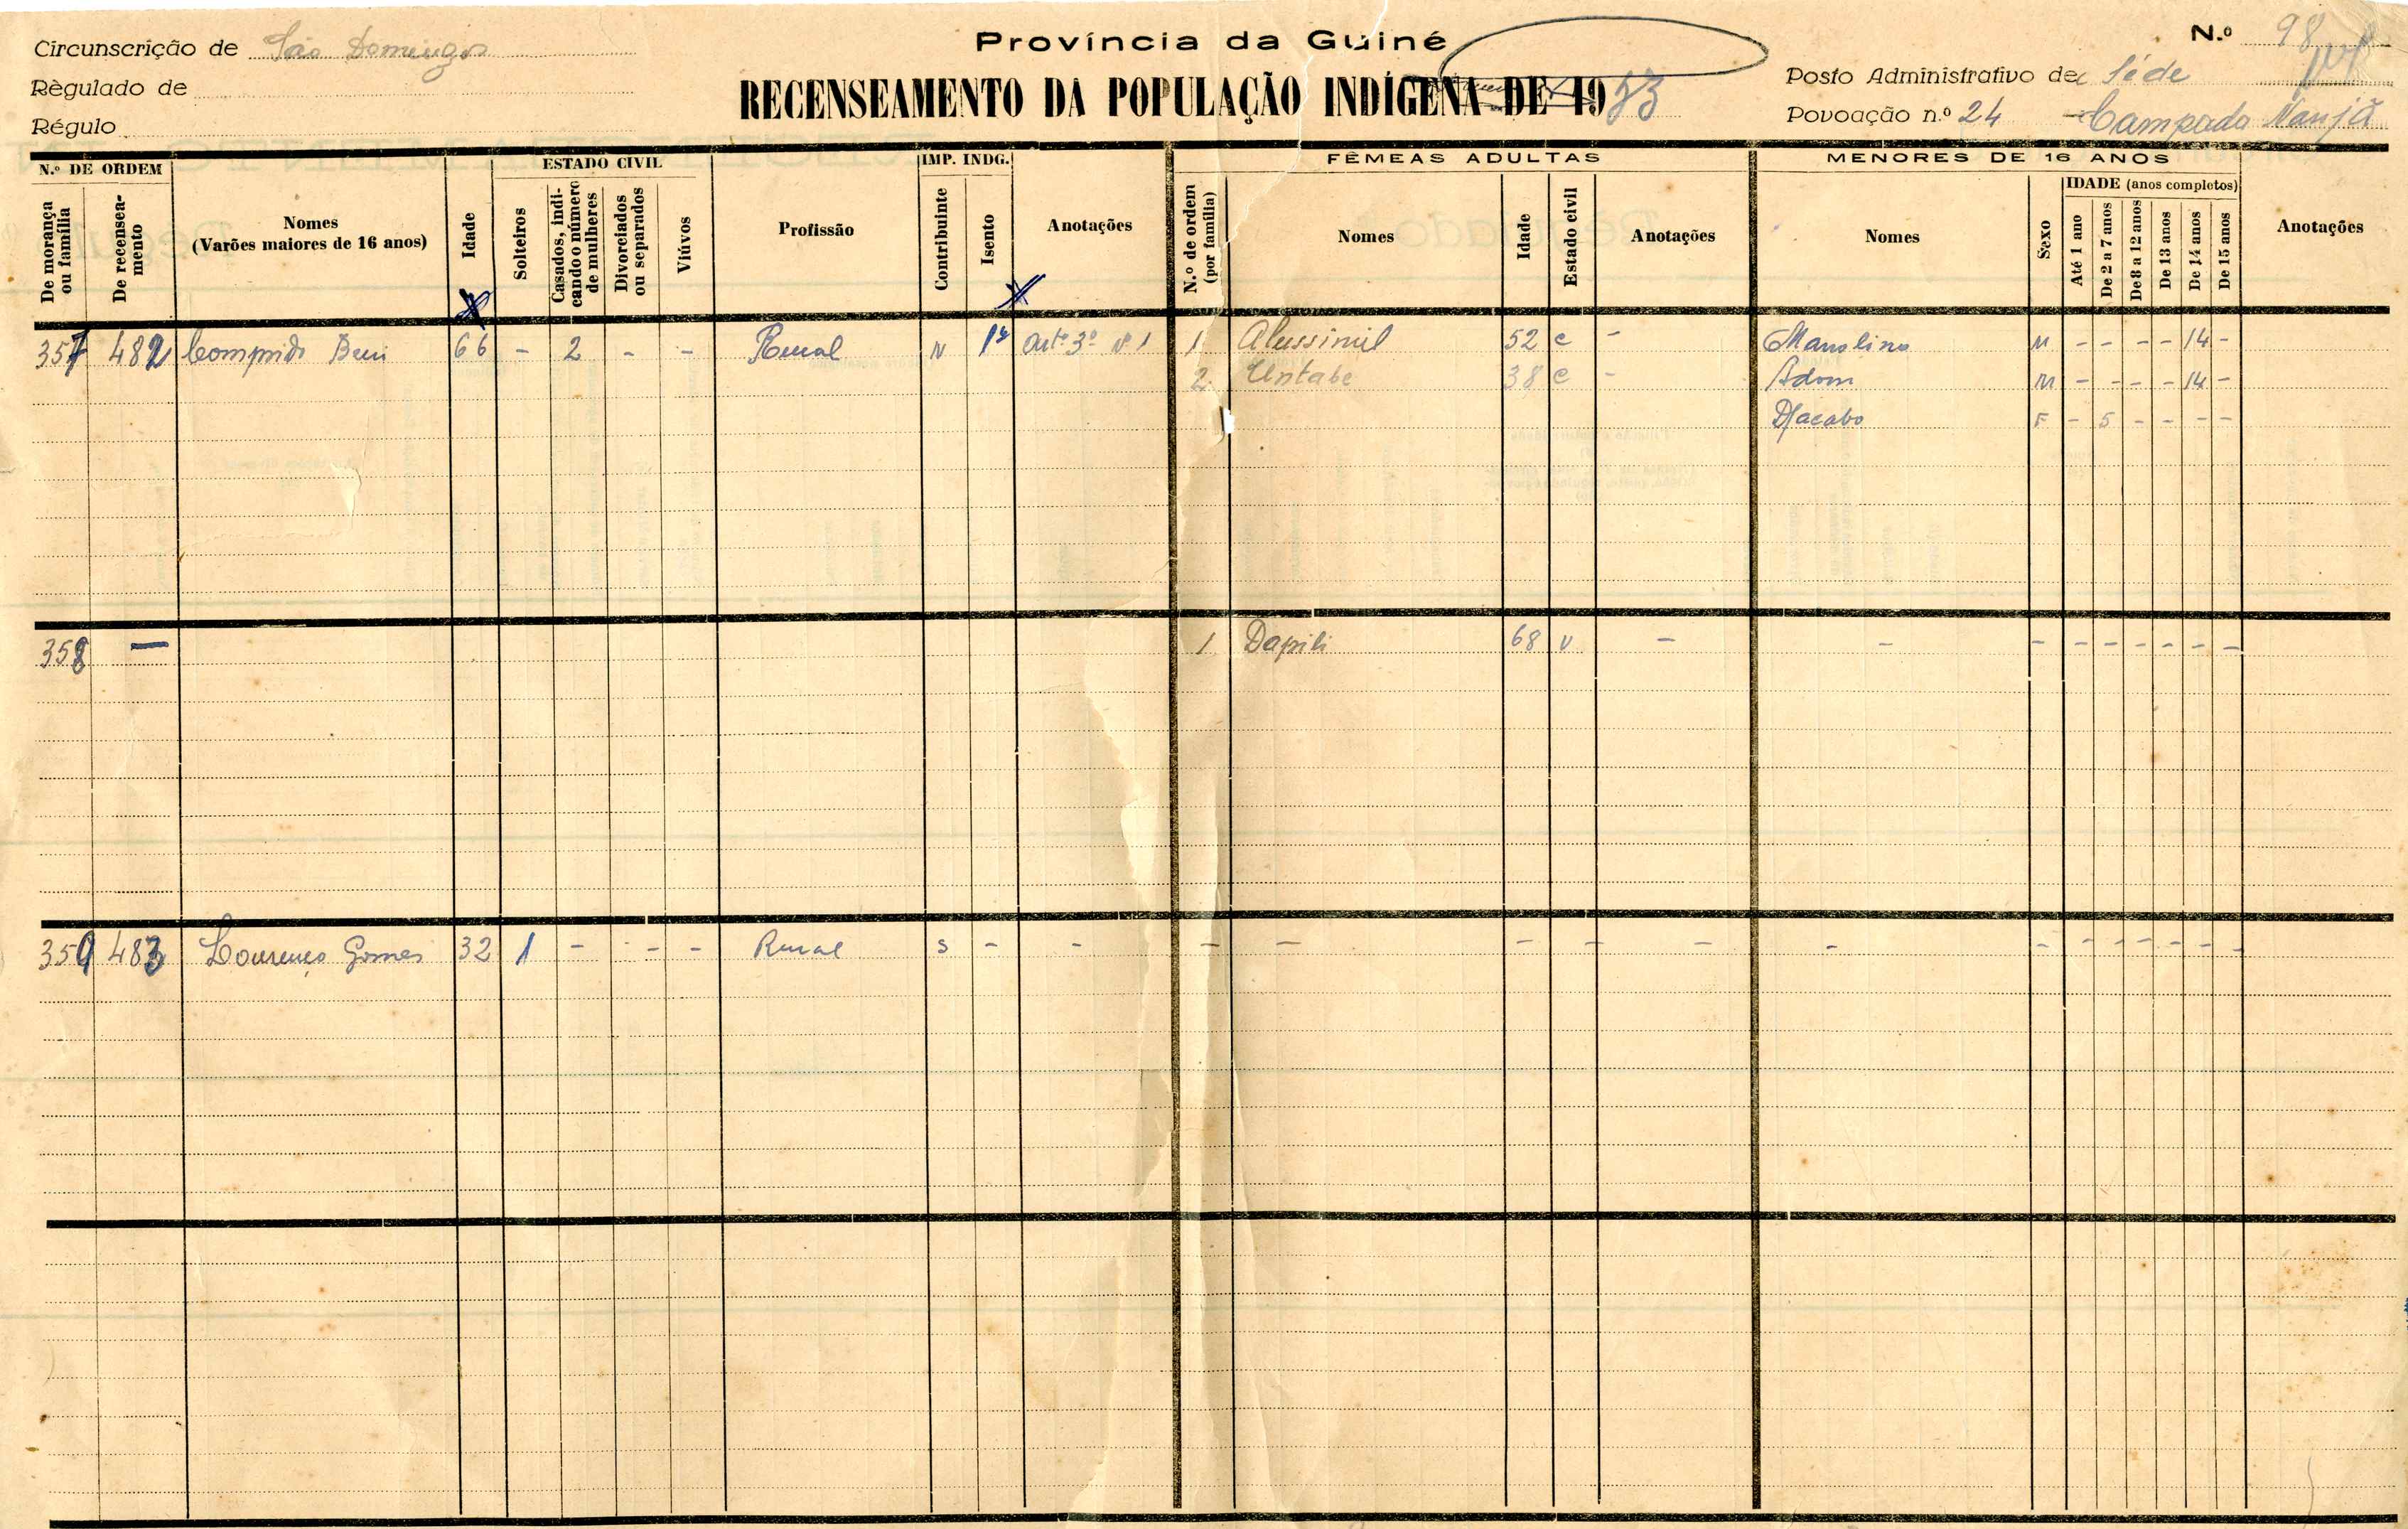 Província da Guiné
RECENSEAMENTO DA POPULAÇÃO INDÍGENA DE 1953
Circunscrição de São Domingos
Règulado de
Régulo
N.º 98
Posto Administrativo de Séde
Povoação n.º 24 - Campada Nanjã
N.º DE ORDEM
De morança ou família
De recenseamento
Nomes
(Varões maiores de 16 anos)
Idade
ESTADO CIVIL
Solteiros
Casados, indicando o número de mulheres
Divorciados ou separados
Viúvos
Profissão
IMP. INDG.
Contribuinte
Isento
Anotações
FÊMEAS ADULTAS
N.º de ordem (por família)
Nomes
Idade
Estado civil
Anotações
MENORES DE 16 ANOS
Nomes
Sexo
IDADE (anos completos)
Até 1 ano
De 2 a 7 anos
De 8 a 12 anos
De 13 anos
De 14 anos
De 15 anos
Anotações
357 482 Comprido 66 - 2 - - Rural N Artº 3º nº 1 1 Alussimil 52 c - Marolino M - - - - 14 -
2 Untabe 38 c - Adom M - - - - 14 -
Djacabo F - 5 - - - -
358 — 1 Dapili 68 V - - - - - - - - -
359 483 Lourenço Gomes 32 1 - - - Rural S - - - - - - - - - - - - - - -